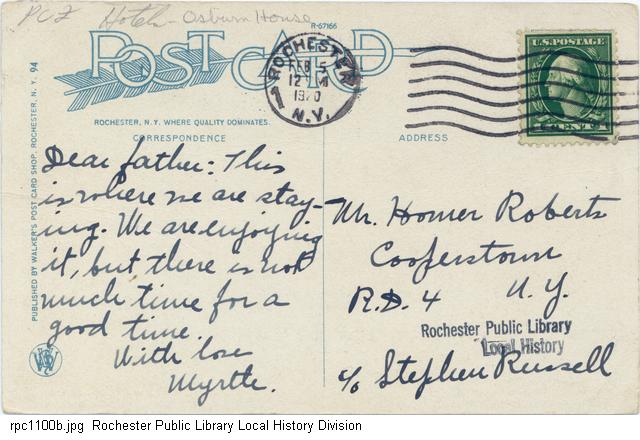 PC2 Hotels - Osburn House
R-67166
POST CARD
ROCHESTER
FEB 5
12 M
1920
N.Y.
1
U.S. POSTAGE
ROCHESTER, N.Y. WHERE QUALITY DOMINATES.
CORRESPONDENCE
ADDRESS
PUBLISHED BY WALKER'S POST CARD SHOP, ROCHESTER, N. Y. 94
Dear father: This
is where we are stay-
ing. We are enjoying
it, but, there is not
much time for a
good time.
With love
Myrtle.
Mr. Homer Roberts
Cooperstown
R.D. 4 N.Y.
Rochester Public Library
Local History
c/o Stephen Russell
rpc1100b.jpg Rochester Public Library Local History Division